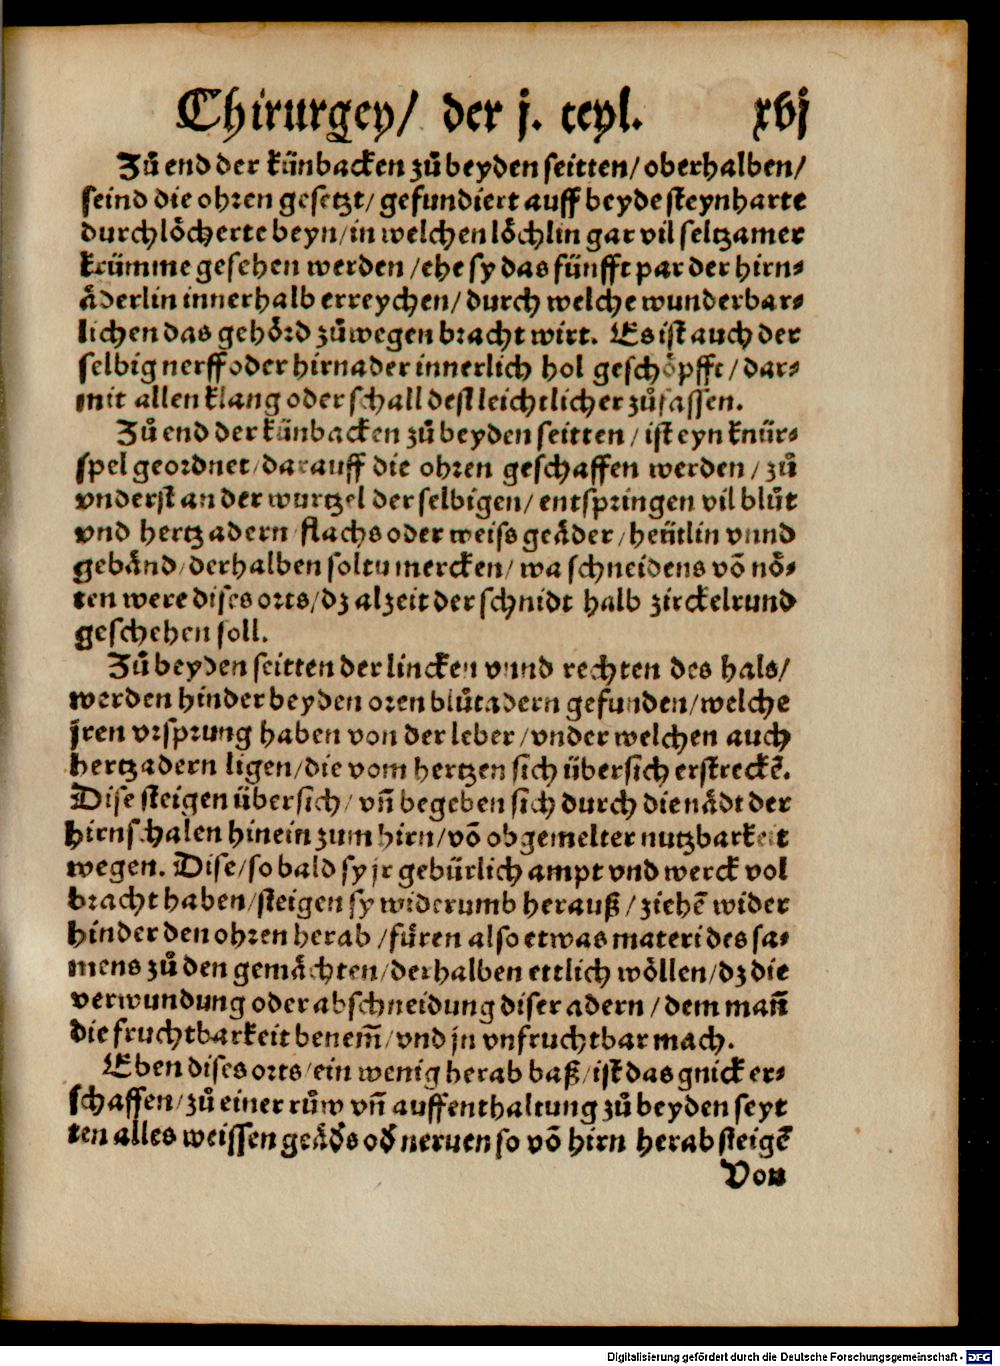 Chirurgey/ der j. teyl. xvj
Zů end der künbacken zů beyden seitten/ oberhalben/
seind die ohren gesetzt/ gefundiert auff beyde steynharte
durchlöcherte beyn/ in welchen löchlin gar vil seltzamer
krümme gesehen werden / ehe sy das fünfft par der hirn⸗
äderlin innerhalb erreychen/ durch welche wunderbar⸗
lichen das gehörd zůwegen bracht wirt. Es ist auch der
selbig nerff oder hirnader innerlich hol geschöpfft/ dar⸗
mit allen klang oder schall dest leichtlicher zůfassen.
Zů end der künbacken zů beyden seitten / ist eyn knür⸗
spel geordnet/ darauff die ohren geschaffen werden / zů
vnderst an der wurtzel der selbigen/ entspringen vil blůt
vnd hertz adern flachs oder weiss geäder / heütlin vnnd
gebänd/ derhalben soltu mercken/ wa schneidens võ nö⸗
ten were dises orts/ dz alzeit der schnidt halb zirckelrund
geschehen soll.
Zů beyden seitten der lincken vnnd rechten des hals/
werden hinder beyden oren blůtadern gefunden/ welche
jren vrsprung haben von der leber / vnder welchen auch
hertzadern ligen/ die vom hertzen sich übersich erstreckẽ.
Dise steigen übersich/ vñ begeben sich durch die nädt der
hirnschalen hinein zum hirn/ võ obgemelter nutzbarkeit
wegen. Dise/ so bald sy jr gebürlich ampt vnd werck vol
bracht haben/ steigen sy widerumb herauß/ ziehẽ wider
hinder den ohren herab / füren also etwas materi des sa⸗
mens zů den gemächten/ derhalben ettlich wöllen/ dz die
verwundung oder abschneidung diser adern / dem mañ
die fruchtbarkeit benem̃/ vnd jn vnfruchtbar mach.
Eben dises orts/ ein wenig herab baß/ ist das gnick er⸗
schaffen/ zů einer růw vñ auffenthaltung zů beyden seyt
ten alles weissen geäd's od' neruen so võ hirn herab steigẽ
Von
Digitalisierung gefördert durch die Deutsche Forschungsgemeinschaft - DFG